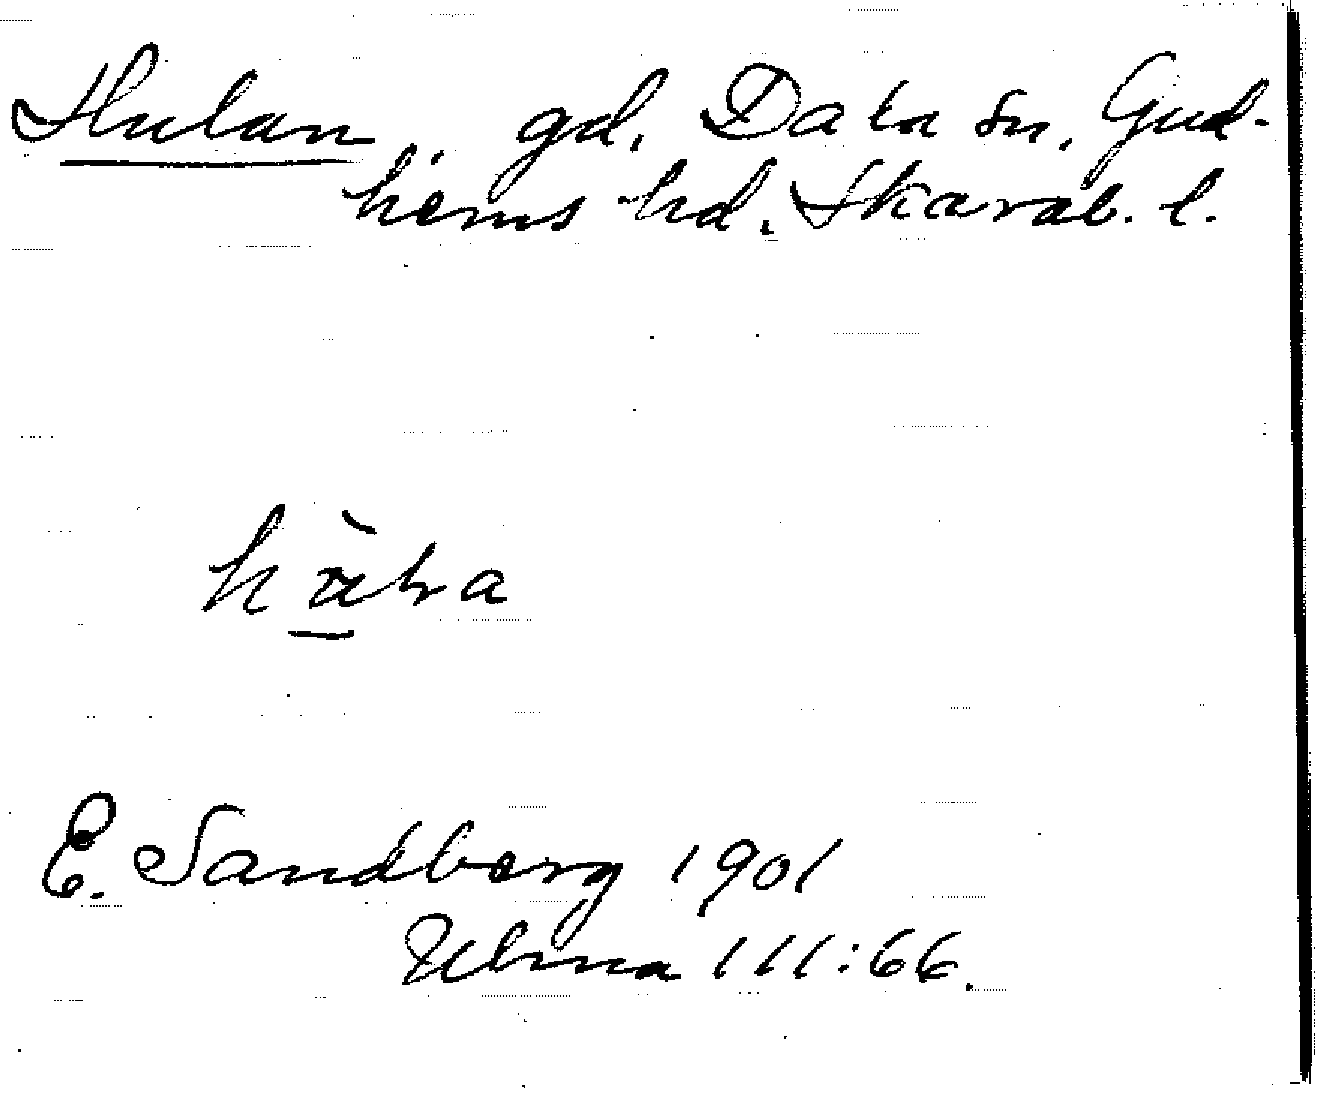 Hulan, gd, Dala sn, Gud-
hems hd. Skarab. l.
E. Sandberg 1901
Ulma 111:66.